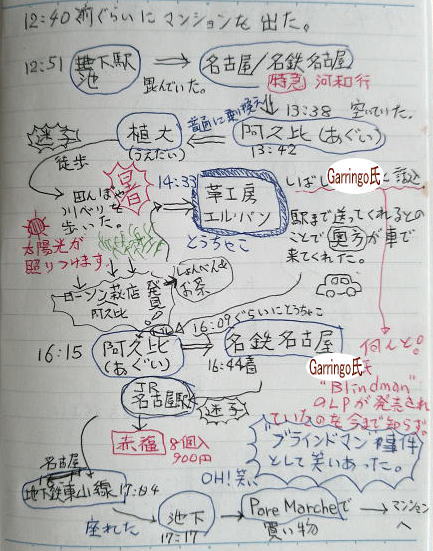 12:40前ぐらいにマンションを出た。
12:51 地下駅
池
名古屋/名鉄名古屋
混んでいた。
特急 河和行
普通に乗換え
13:38 空いていた。
阿久比(あぐい)
13:42
植大
(うえだい)
迷子
徒歩
暑
田んぼや
川べりを
歩いた。
太陽光が
照りつけます
14:33
革工房
エル・バン
とうちゃこ
いばし Garringo氏と談
駅まで送ってくれるとの
ことで奥方が車で
来てくれた。
ローソン萩店 発見
阿久比
しょんべん&
お茶
16:09ぐらいにとうちゃこ
16:15 阿久比
(あぐい)
名鉄名古屋
16:44着
何んと。
Garringo氏
"Blindman"
のLPが発売され
ていたのを今まで知らず。
ブラインドマン事件
として笑いあった。
OH!笑、
JR
名古屋駅
迷子
赤福 8個入
900円
名古屋
地下鉄東山線 17:04
座れた
池下
17:17
Pore Marcheで
買い物
マンション
へ